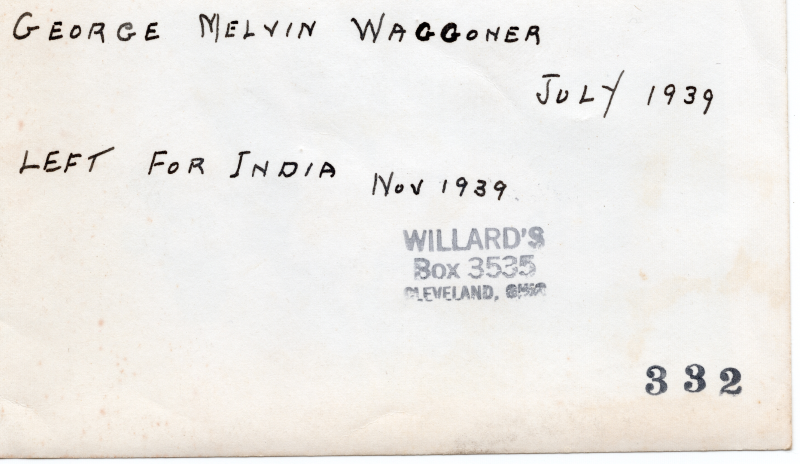 GEORGE MELVIN WAGGONER
JULY 1939
LEFT FOR INDIA NOV 1939
WILLARD'S
Box 3535
CLEVELAND, OHIO
332